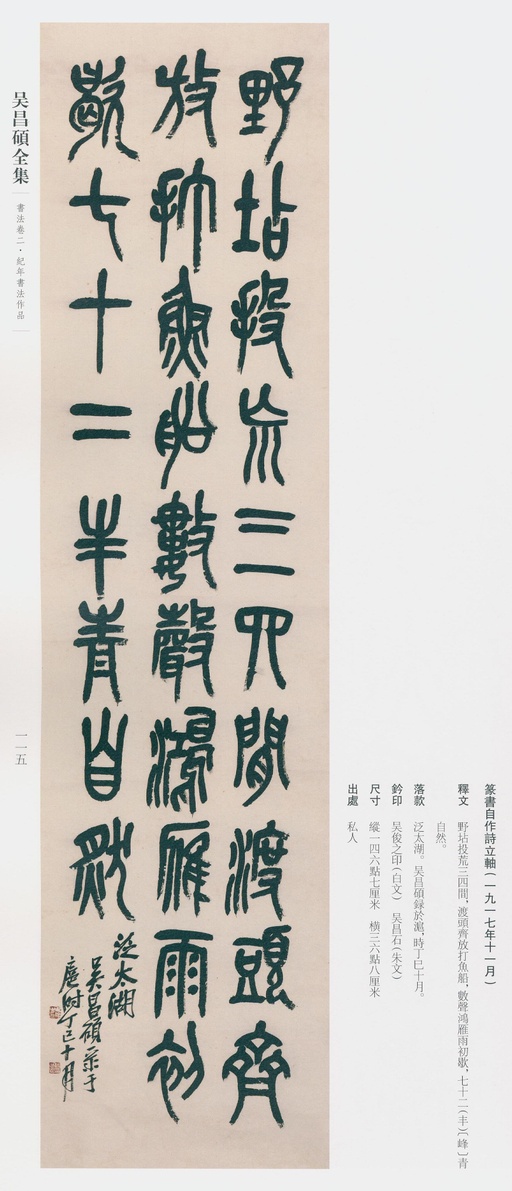 野坫投㐬三四間渡頭齊
放打魚船數聲鴻雁雨初
歇七十二丰青自然
泛太湖
吴昌碩录于
滬時丁巳十月
篆書自作詩立軸（一九一七年十一月）
釋文　野坫投荒三四間，渡頭齊放打魚船，數聲鴻雁雨初歇，七十二（丰）〔峰〕青
自然。
落款　泛太湖。吴昌碩録於滬，時丁巳十月。
鈐印　吴俊之印（白文）　吴昌石（朱文）
尺寸　縱一四六點七厘米　橫三六點八厘米
出處　私人
吴昌碩全集
書法卷二·紀年書法作品
一一五